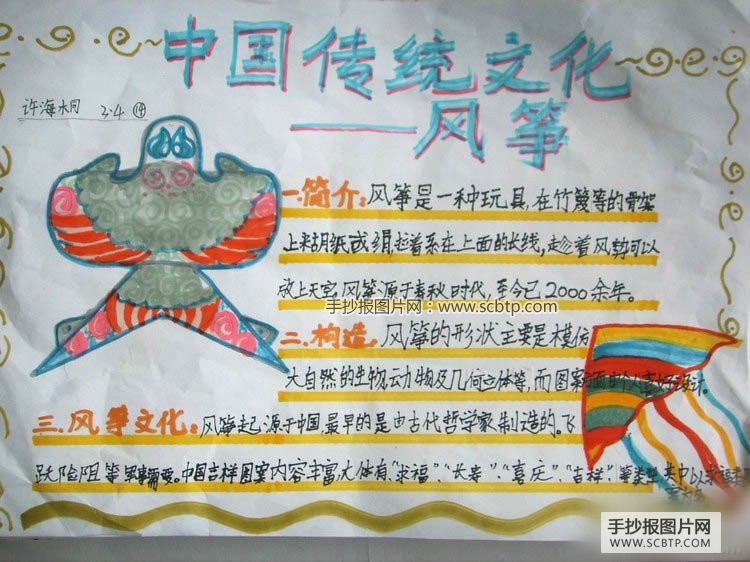 中国传统文化
——风筝
许海 3.4 ⑭
一.简介:风筝是一种玩具,在竹篾等的骨架
上粘月纸或绢,起着系在上面的长线,趁着风势可以
放上天空,风筝源于春秋时代,至今已2000余年。
手抄报图片网:www.scbtp.com
二.构造:风筝的形状主要是模仿
大自然的生物,动物及几何立体等,而图案方面由个人喜好设计。
三.风筝文化:风筝起源于中国最早的是由古代哲学家制造的。飞
跃险阻等军事需要。中国吉祥图案内容丰富,大体有“求福”、“长寿”、“喜庆”、“吉祥”等类型,其中以求福
手抄报图片网
WWW.SCBTP.COM